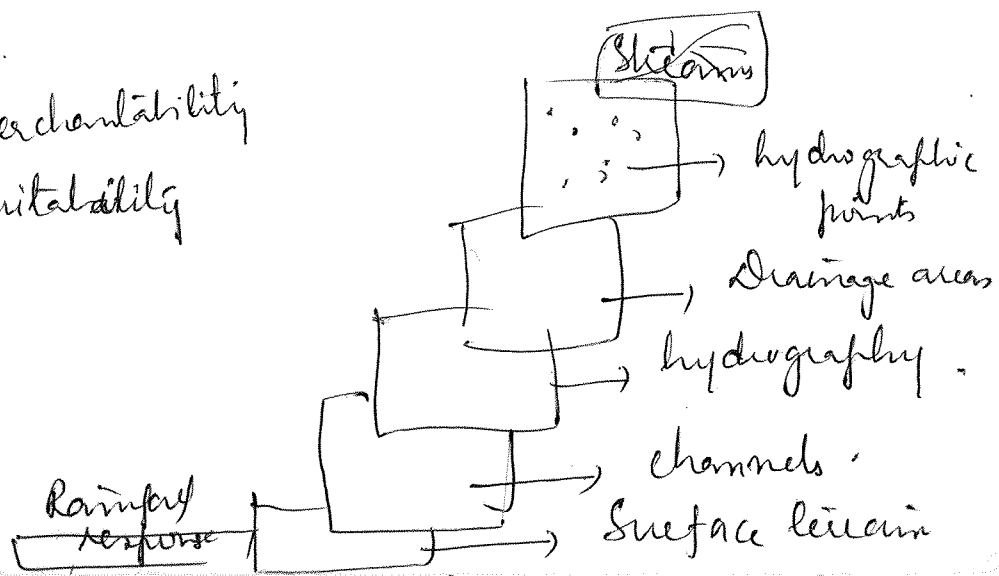 Streams
erchantability
uitability
hydrographic
points
Drainage areas
hydrography.
channels.
Rainfall
response
Surface terrain